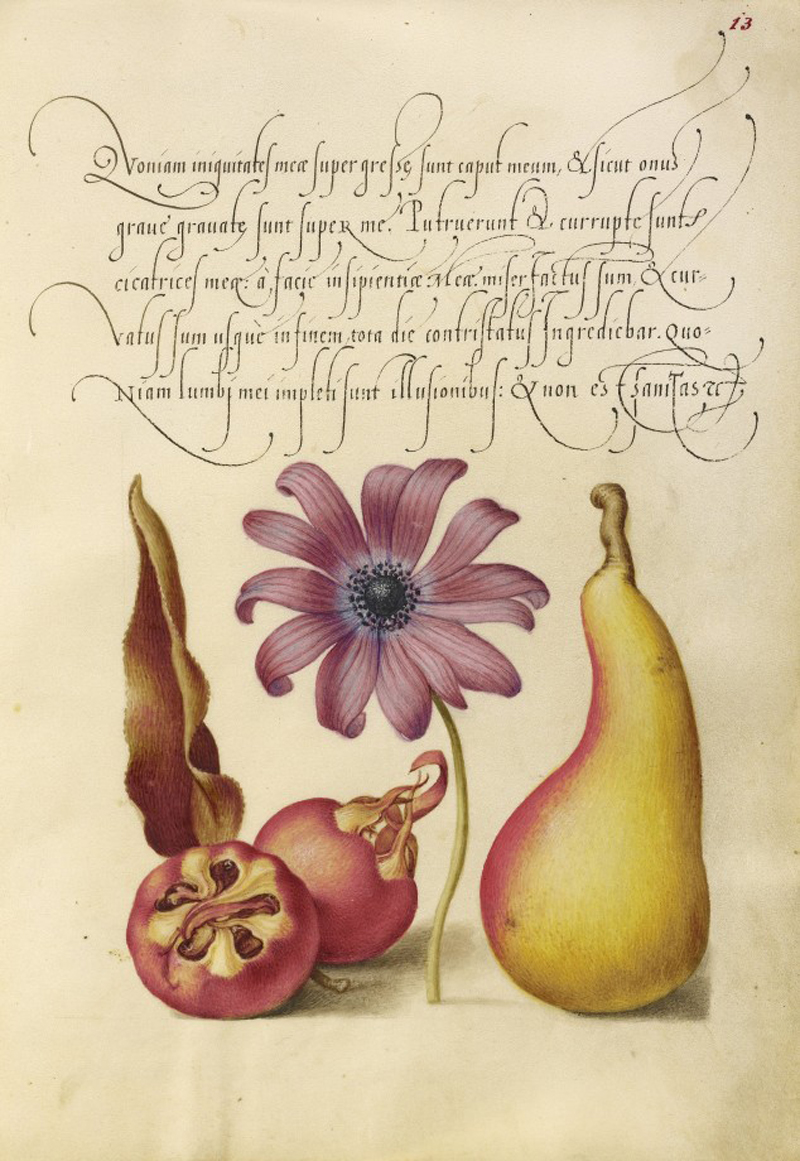 13
Quoniam iniquitates meæ supergressę sunt caput meum, & sicut onus
graue grauatę sunt super me. Putruerunt & curruptę sunt
cicatrices meę: à facie insipientiæ Meæ. miser factus sum, & cur-
vatus sum usque in finem, tota die contristatus Ingrediebar. Quo-
Niam lumbj mei impleti sunt illusionibus: & non es sanitas